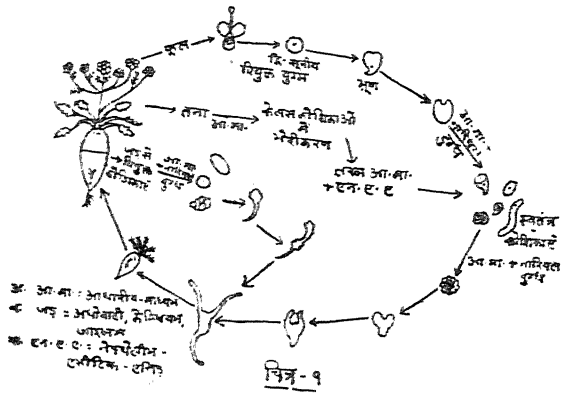 फूल
द्वि-सूत्रीय
वियुक्त युग्म
भ्रूण
आ.मा.+
नारियल
दुग्ध
तना
आ.मा.
कैलस कोशिकाओं
में
भिन्नीकरण
तरल आ.मा.
+एन.ए.ए
जड़ से
वियुक्त
कोशिकाएँ
आ.मा.
नारियल
दुग्ध
स्वतंत्र
कोशिकाएँ
आ.मा+नारियल
दुग्ध
आ.मा. : आधारीय-माध्यम
जड़ :
एन.ए.ए :
एसीटिक-एसिड
चित्र-१